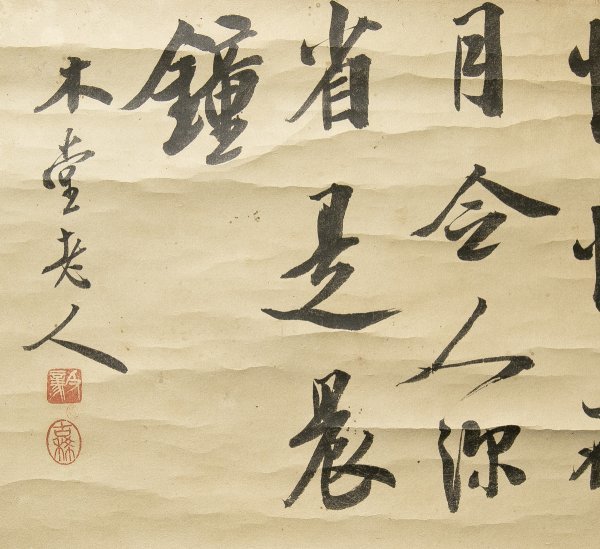 月令人深
省是晨
鐘
木堂老人